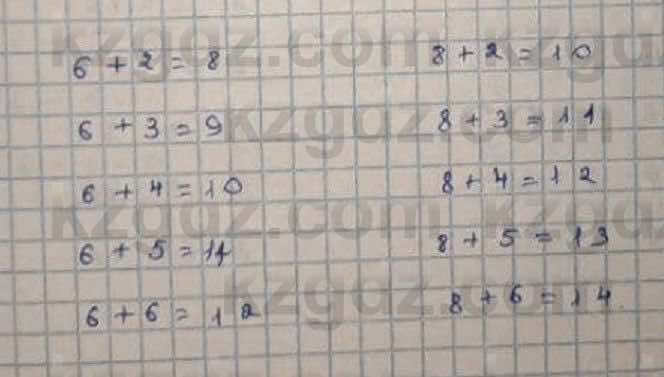 6 + 2 = 8
6 + 3 = 9
6 + 4 = 10
6 + 5 = 11
6 + 6 = 12
8 + 2 = 10
8 + 3 = 11
8 + 4 = 12
8 + 5 = 13
8 + 6 = 14
kzgdz.com kzgdz
kzgdz.com
kzgdz.com kzgdz
kzgdz.com